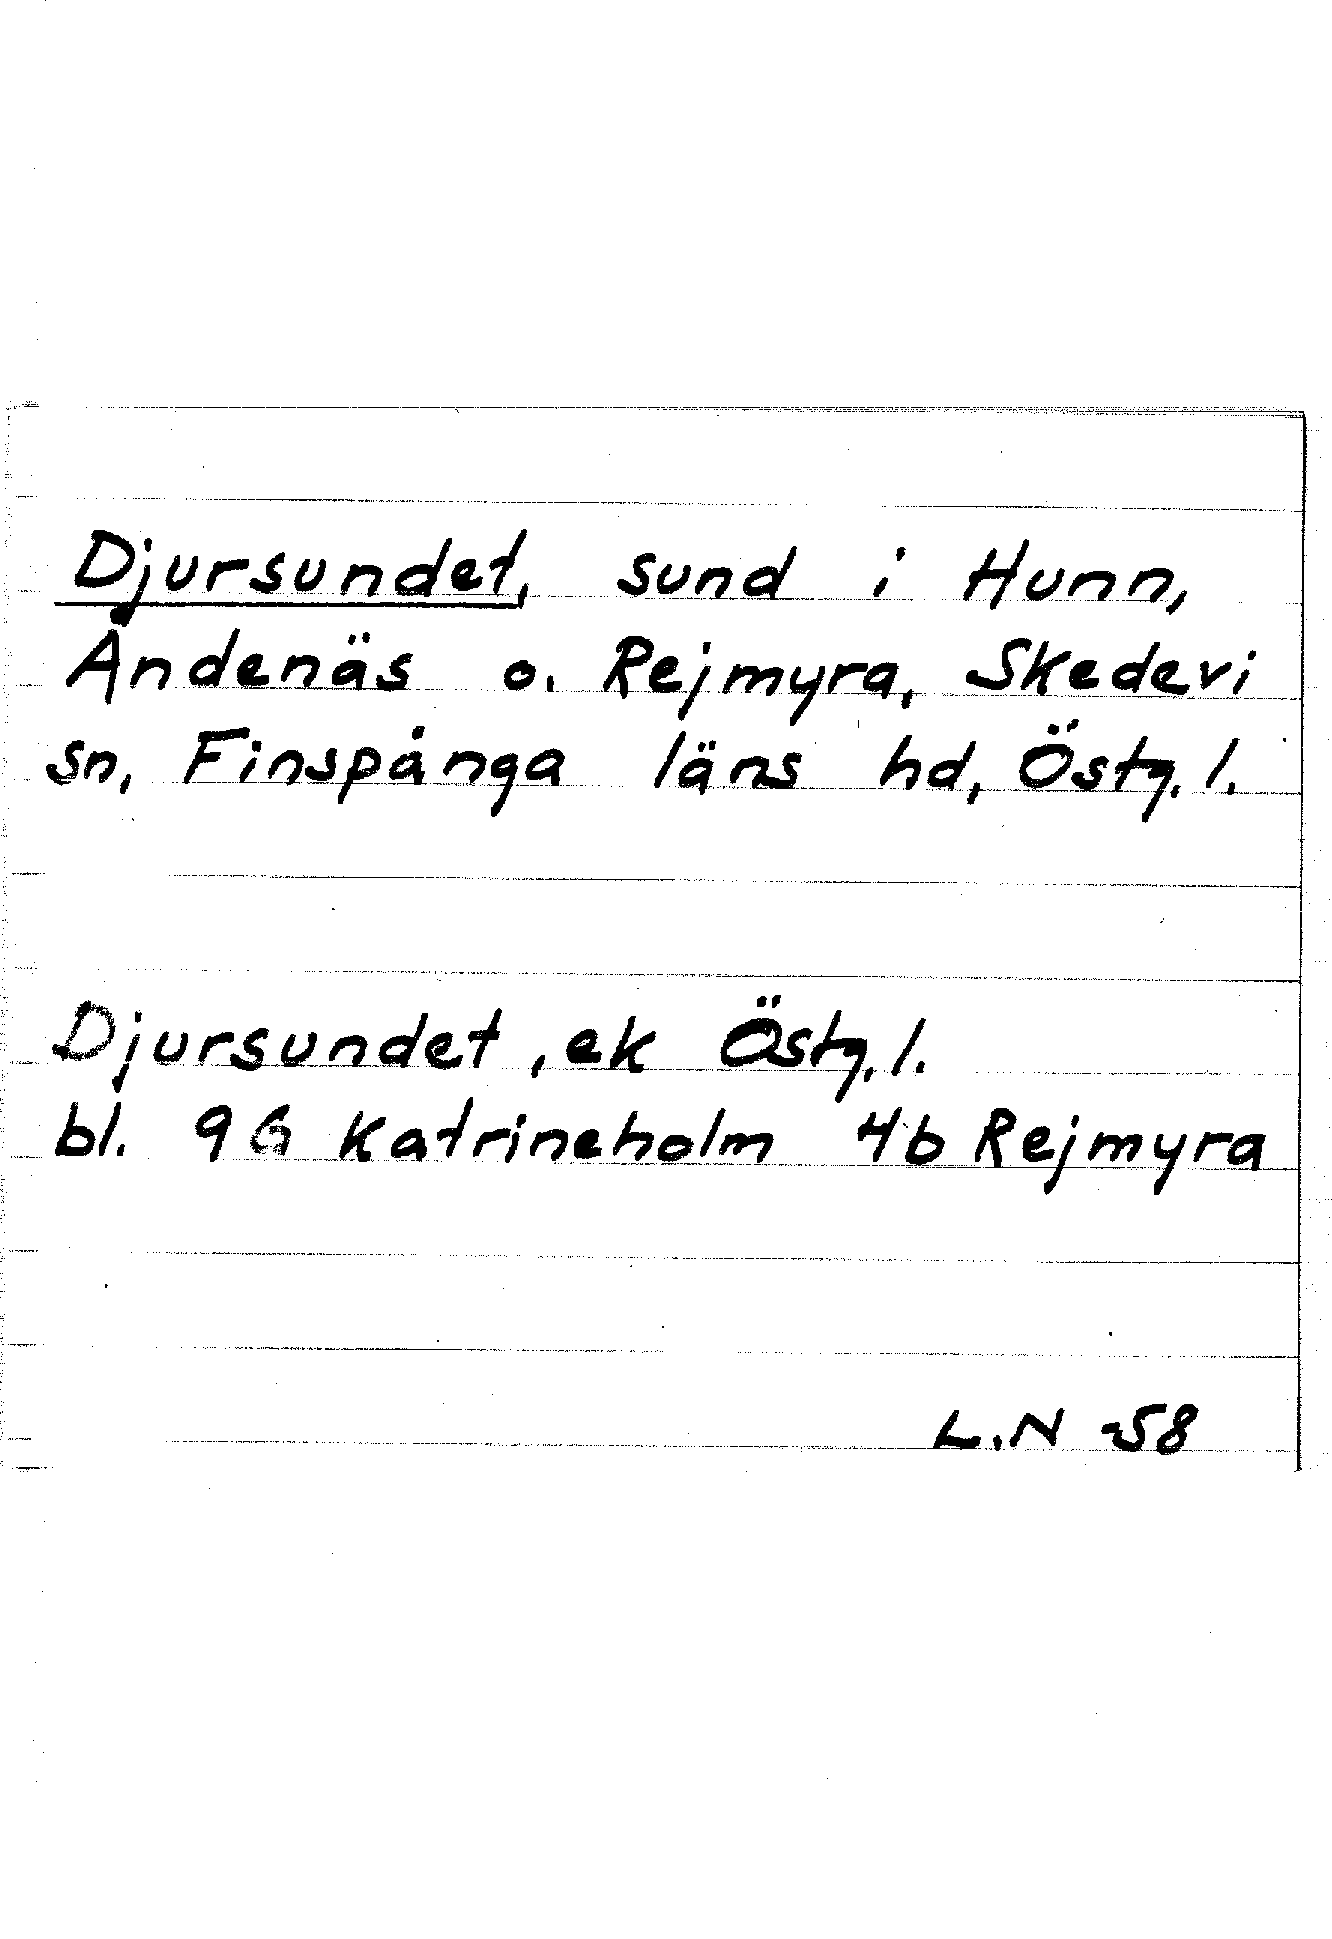 Djursundet, sund i Hunn,
Åndenäs o. Rejmyra, Skedevi
sn, Finspånga läns hd, Östg. l.
Djursundet, ek Östg. l.
bl. 9G Katrineholm 4b Rejmyra
L.N -58